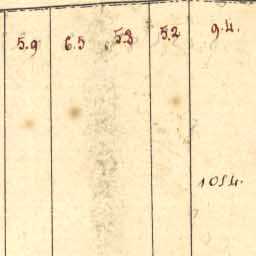 5.9 6.5 5.3 5.2 9.4.
1054.